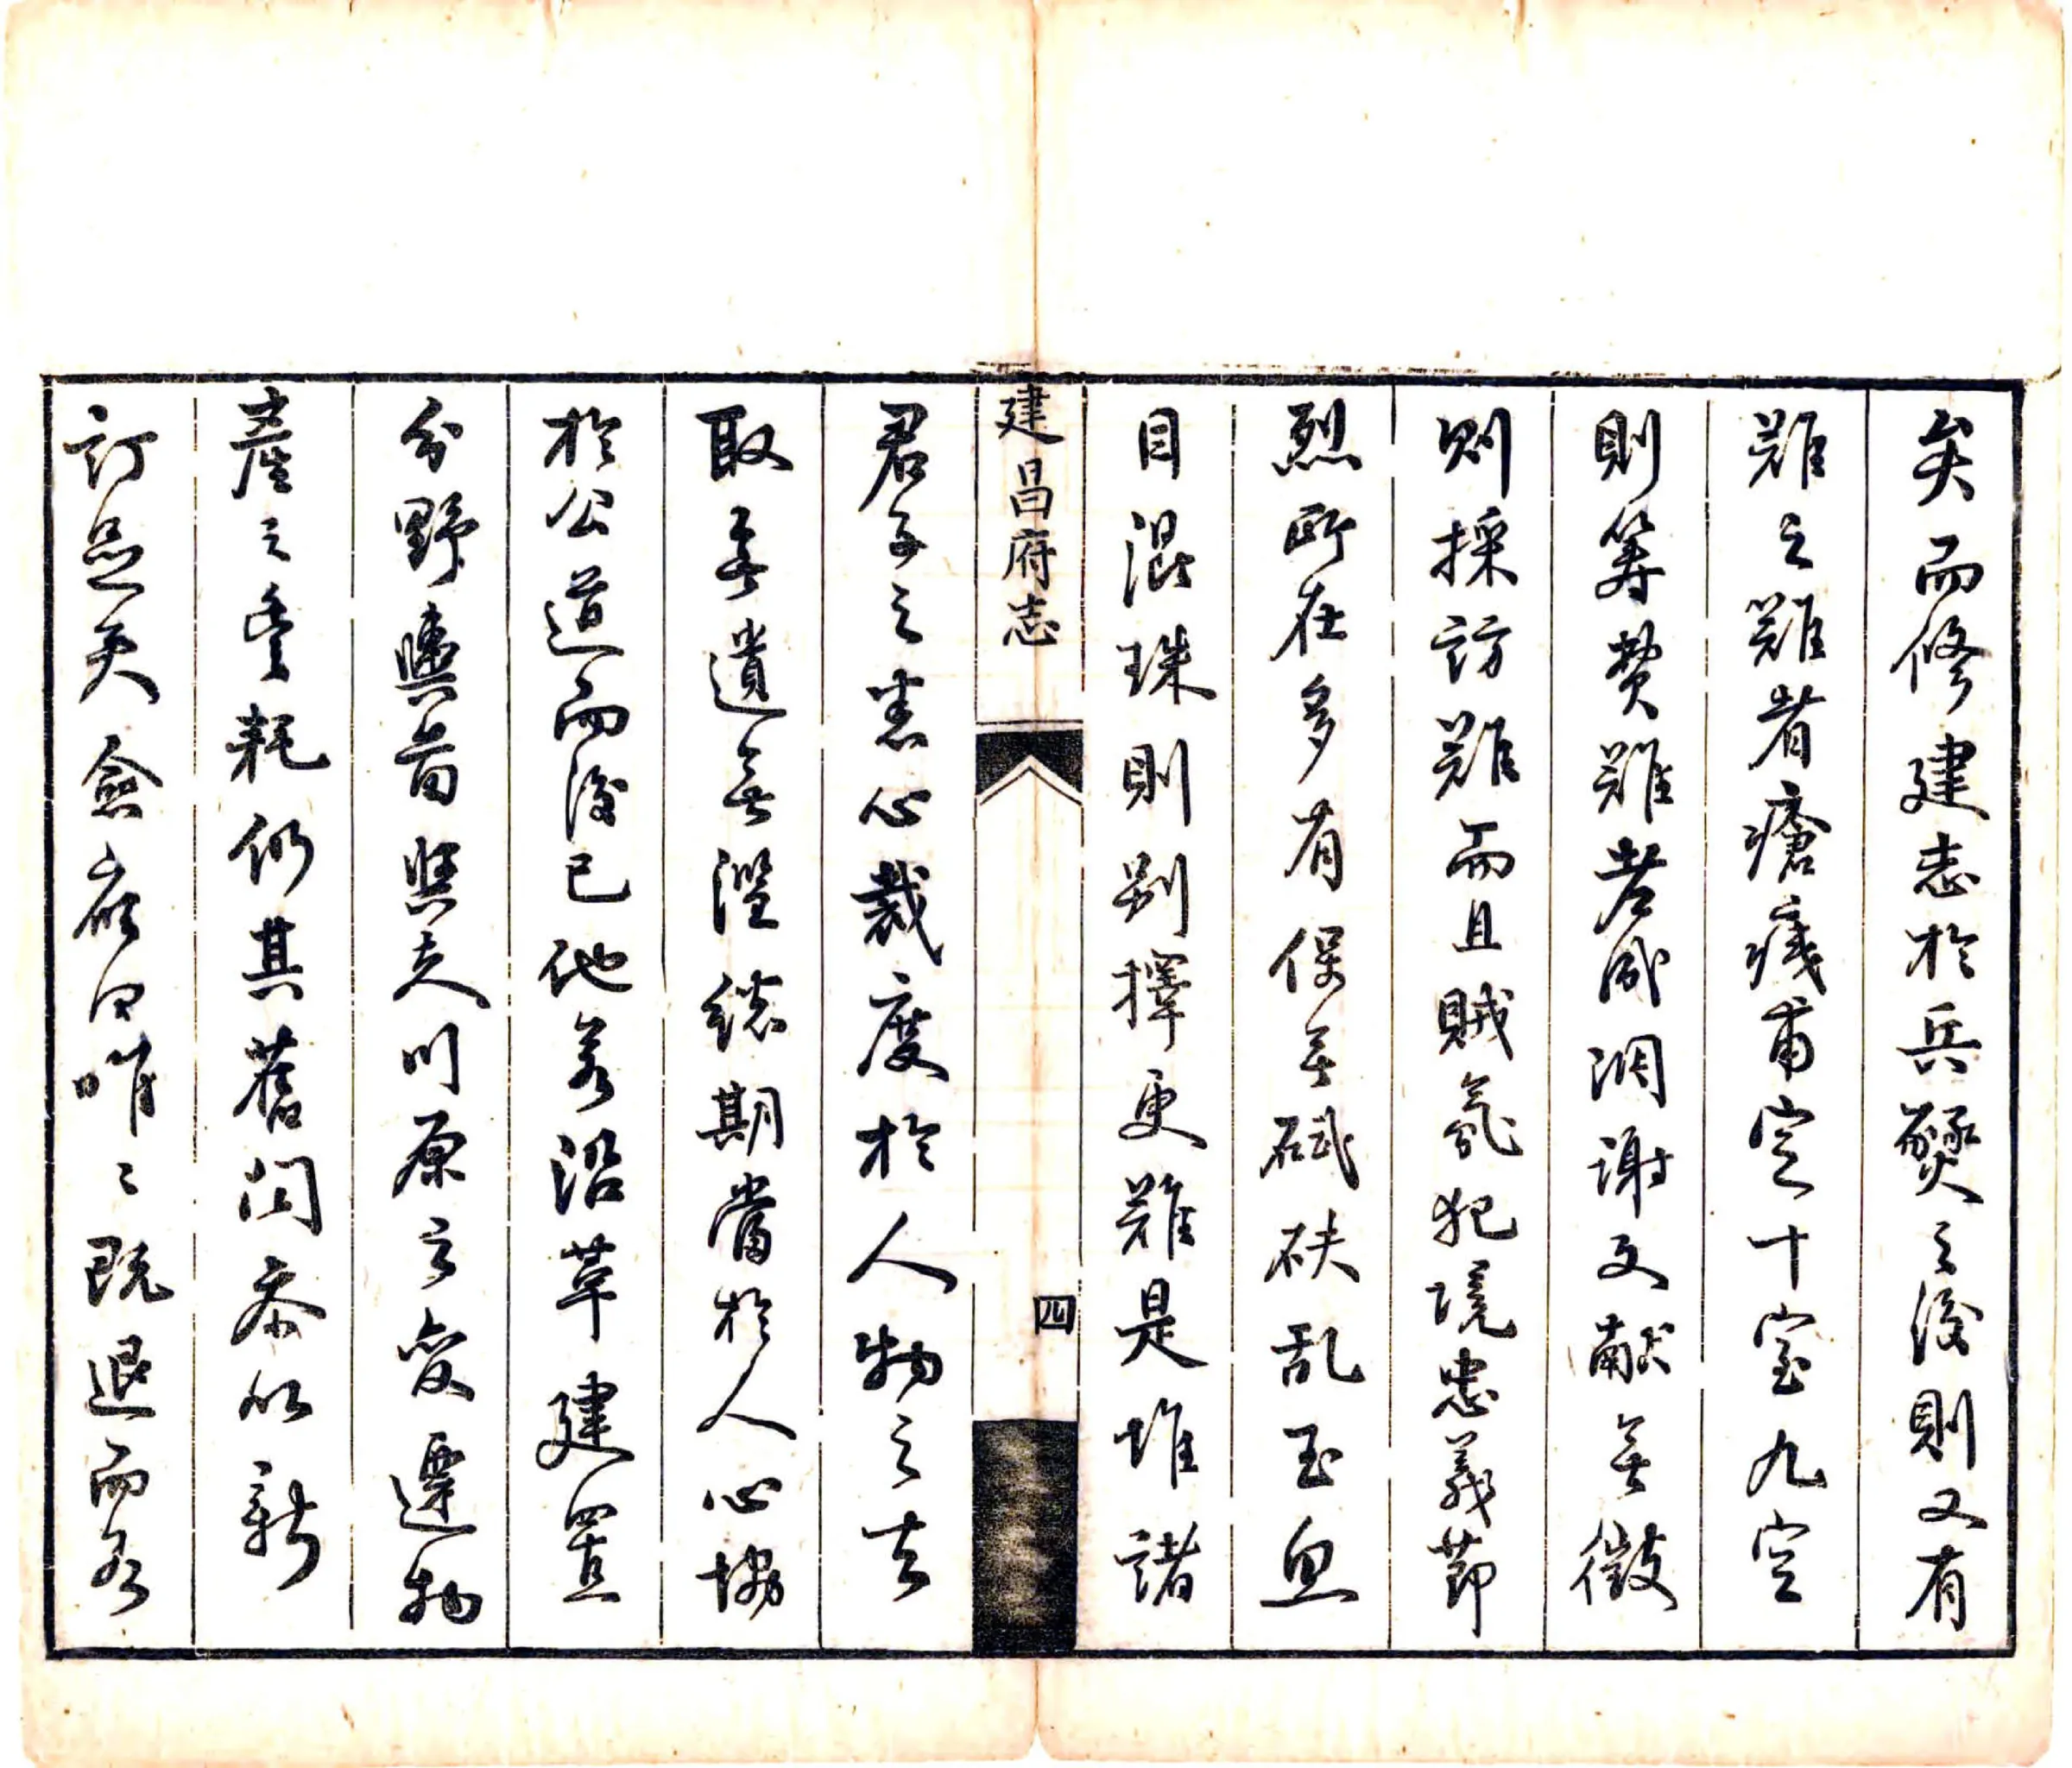 矣而修建志於兵燹之後則又有
難之難者瘡痍甫定十室九空
則籌費難老成凋謝文献無徵
則採訪難而且賊氛犯境忠義節
烈所在多有保無碔砆乱玉魚
目混珠則别擇更難是惟諸
建昌府志
四
君子之悉心裁度於人物之去
取無遺無濫總期當於人心協
於公道而後已他若沿革建置
分野與夫川原之變遷物
產之豐耗仍其舊聞参以新
訂足矣僉應曰唯〻既退而